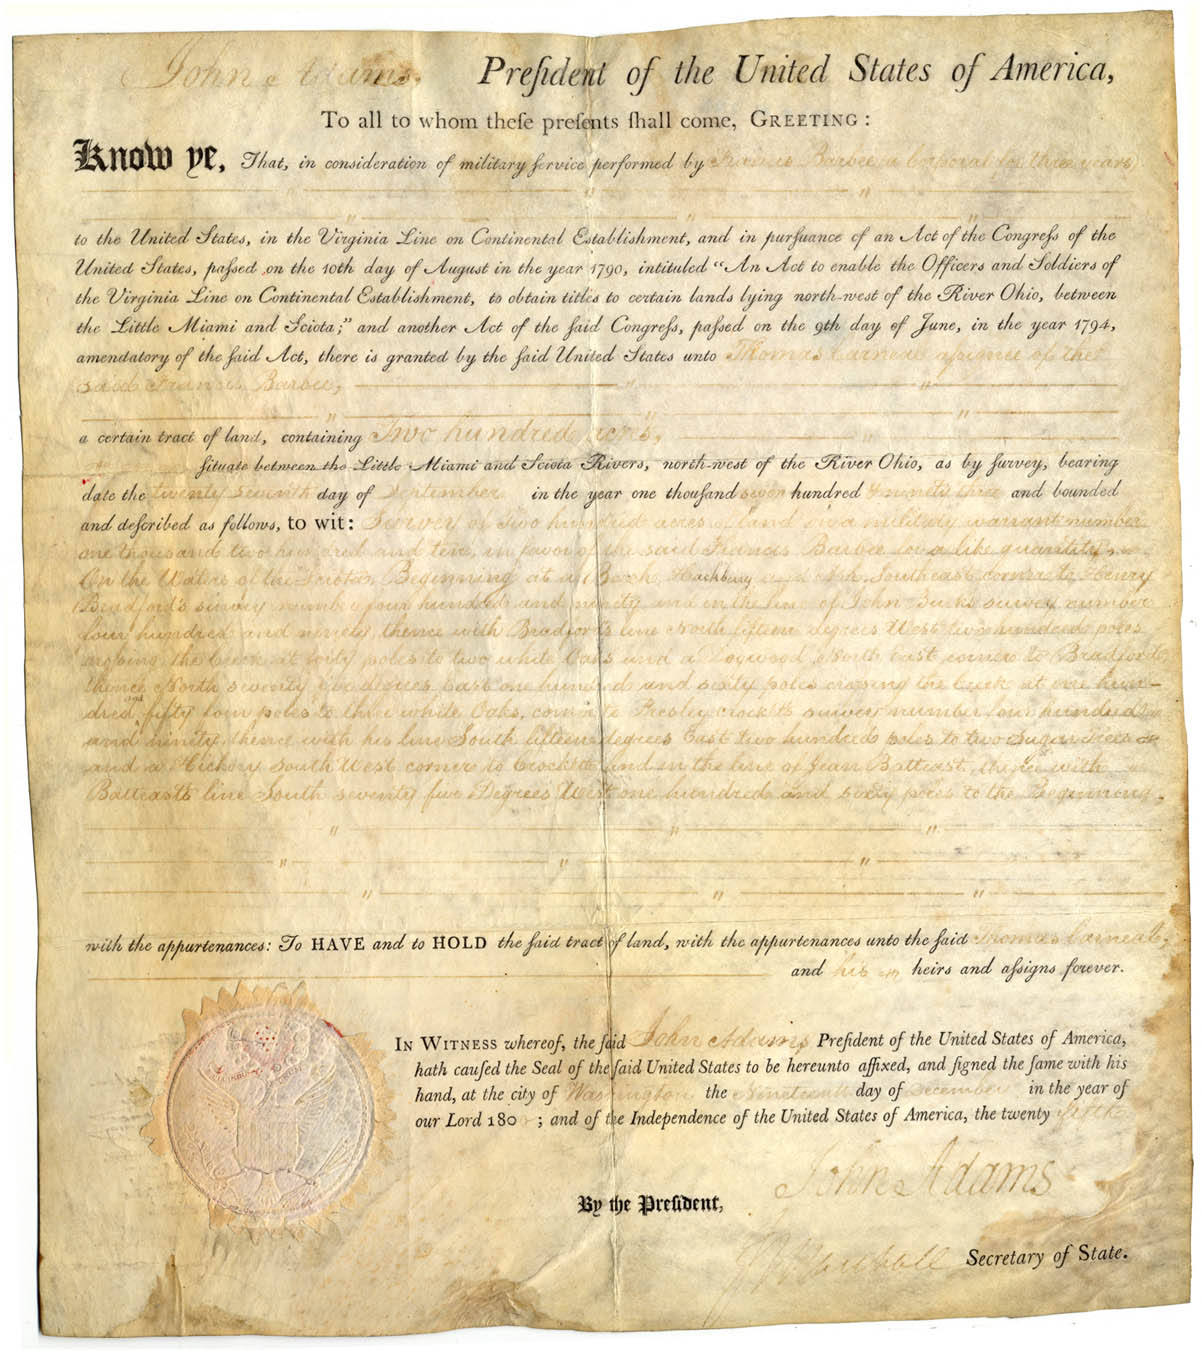 John Adams, Preſident of the United States of America,
To all to whom theſe preſents ſhall come, GREETING:
Know ye, That, in conſideration of military ſervice performed by Francis Barbee a Corporal for three years)
to the United States, in the Virginia Line on Continental Eſtabliſhment, and in purſuance of an Act of the Congreſs of the
United States, paſſed on the 10th day of Auguſt in the year 1790, intituled "An Act to enable the Officers and Soldiers of
the Virginia Line on Continental Eſtabliſhment, to obtain titles to certain lands lying north-weſt of the River Ohio, between
the Little Miami and Sciota;" and another Act of the ſaid Congreſs, paſſed on the 9th day of June, in the year 1794,
amendatory of the ſaid Act, there is granted by the ſaid United States unto Thomas Carneal aſsignee of the
said Francis Barbee,
a certain tract of land, containing Two hundred acres,
ſituate between the Little Miami and Sciota Rivers, north-weſt of the River Ohio, as by ſurvey, bearing
date the twenty seventh day of September in the year one thouſand seven hundred & ninety three and bounded
and deſcribed as follows, to wit: Survey of Two hundred acres land a military warrant number
one thousand two hundred and ten, in favor of the said Francis Barbee for a like quantity
On the Waters of the Sciota, Beginning at a Beech, Hackbury and Ash, Southeast corner to Henry
Bradford's survey number four hundred and ninety and in the line of John survey number
four hundred and ninety, thence with Bradford's line North fifteen degrees West two hundred poles
croſsing the creek at forty poles to two white Oaks and a Dogwood North East corner to Bradford,
thence North seventy five degrees East one hundred and sixty poles croſsing the creek at one hun-
dred and fifty four poles to three white Oaks, corner to Presley Crocketts survey number four hundred
and ninety, thence with his line South fifteen degrees East two hundred poles to two Sugar Trees
and a Hickory South West corner to Crockett and in the line of Jean Batteast, thence with
Batteasts line South seventy five Degrees West one hundred and sixty poles to the Beginning.
with the appurtenances: To HAVE and to HOLD the ſaid tract of land, with the appurtenances unto the ſaid Thomas Carneal,
and his heirs and aſſigns forever.
IN WITNESS whereof, the ſaid John Adams Preſident of the United States of America,
hath cauſed the Seal of the ſaid United States to be hereunto affixed, and ſigned the ſame with his
hand, at the city of Washington the Nineteenth day of December in the year of
our Lord 180 ; and of the Independence of the United States of America, the twenty fifth
John Adams
By the Preſident,
J Marshall Secretary of State.